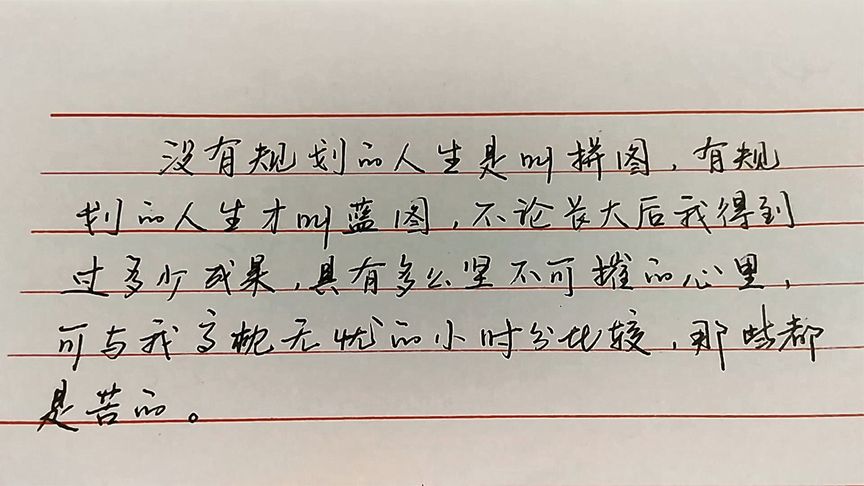 没有规划的人生是叫拼图，有规
划的人生才叫蓝图，不论长大后我得到
过多少成果，具有多么坚不可摧的心里，
可与我高枕无忧的小时分比较，那些都
是苦的。